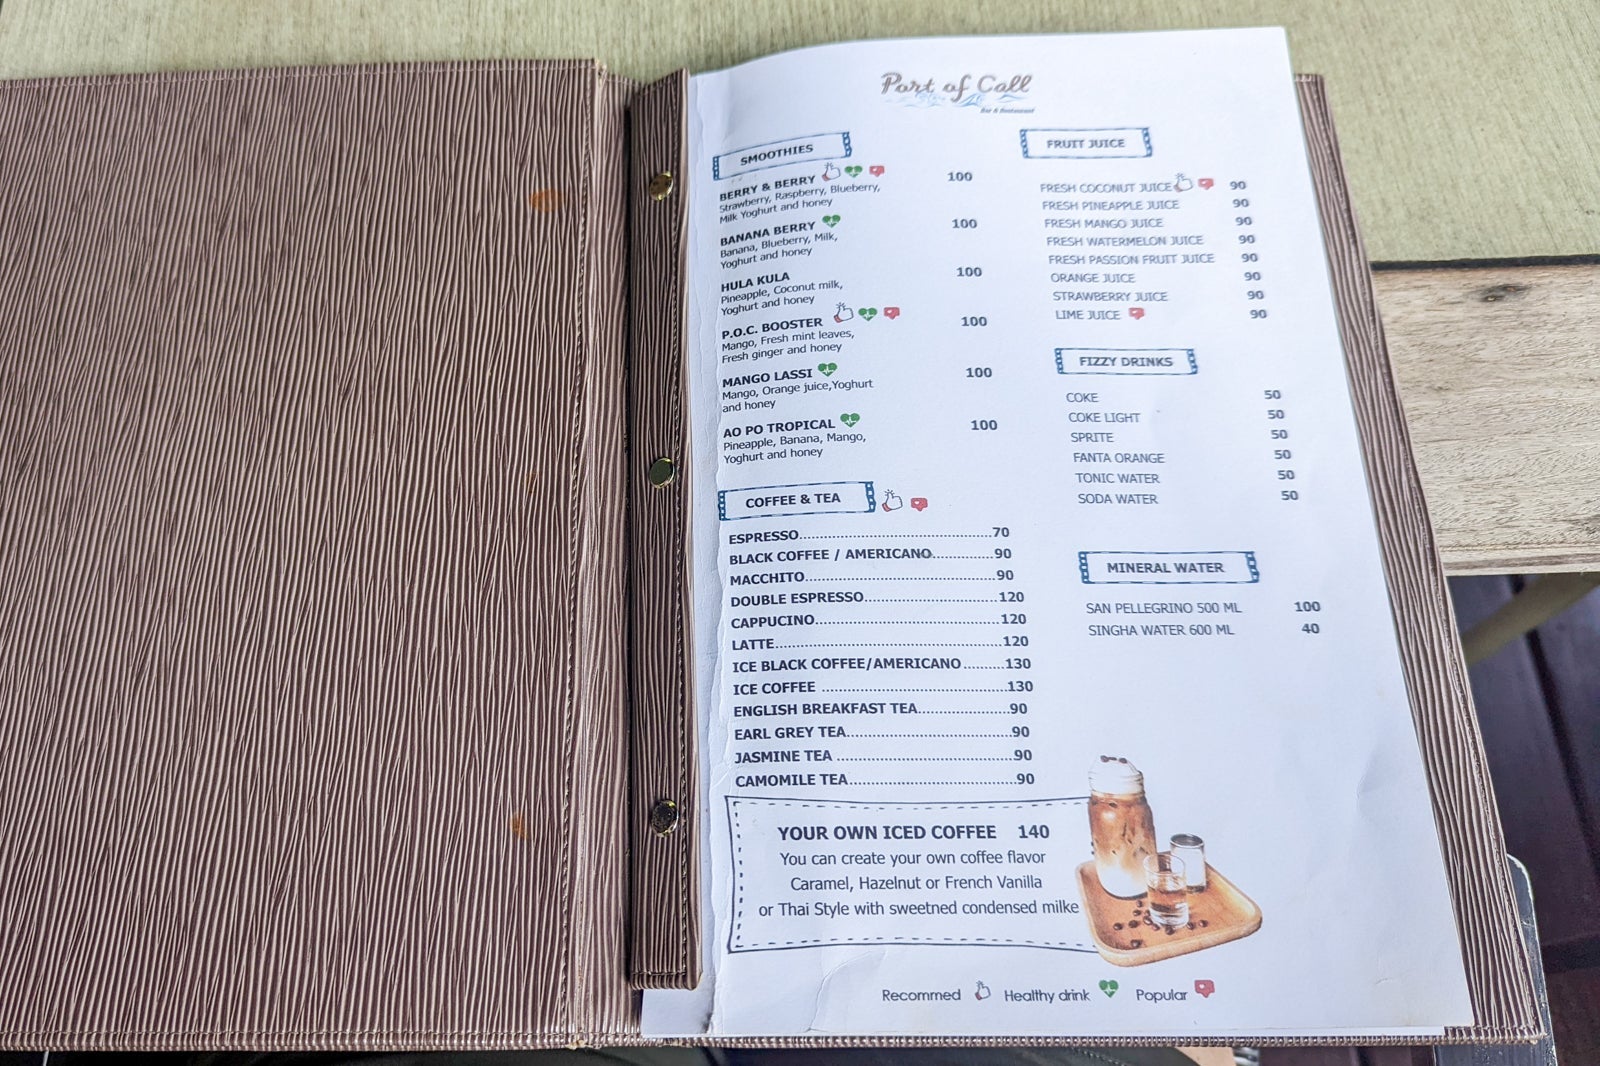 Port of Call
Bar & Restaurant
SMOOTHIES
BERRY & BERRY 100
Strawberry, Raspberry, Blueberry,
Milk Yoghurt and honey
BANANA BERRY 100
Banana, Blueberry, Milk,
Yoghurt and honey
HULA KULA 100
Pineapple, Coconut milk,
Yoghurt and honey
P.O.C. BOOSTER 100
Mango, Fresh mint leaves,
Fresh ginger and honey
MANGO LASSI 100
Mango, Orange juice,Yoghurt
and honey
AO PO TROPICAL 100
Pineapple, Banana, Mango,
Yoghurt and honey
COFFEE & TEA
ESPRESSO...........................................70
BLACK COFFEE / AMERICANO..............90
MACCHITO...........................................90
DOUBLE ESPRESSO..............................120
CAPPUCINO.........................................120
LATTE..................................................120
ICE BLACK COFFEE/AMERICANO.........130
ICE COFFEE .........................................130
ENGLISH BREAKFAST TEA....................90
EARL GREY TEA.....................................90
JASMINE TEA .......................................90
CAMOMILE TEA.....................................90
YOUR OWN ICED COFFEE 140
You can create your own coffee flavor
Caramel, Hazelnut or French Vanilla
or Thai Style with sweetned condensed milke
FRUIT JUICE
FRESH COCONUT JUICE 90
FRESH PINEAPPLE JUICE 90
FRESH MANGO JUICE 90
FRESH WATERMELON JUICE 90
FRESH PASSION FRUIT JUICE 90
ORANGE JUICE 90
STRAWBERRY JUICE 90
LIME JUICE 90
FIZZY DRINKS
COKE 50
COKE LIGHT 50
SPRITE 50
FANTA ORANGE 50
TONIC WATER 50
SODA WATER 50
MINERAL WATER
SAN PELLEGRINO 500 ML 100
SINGHA WATER 600 ML 40
Recommed Healthy drink Popular